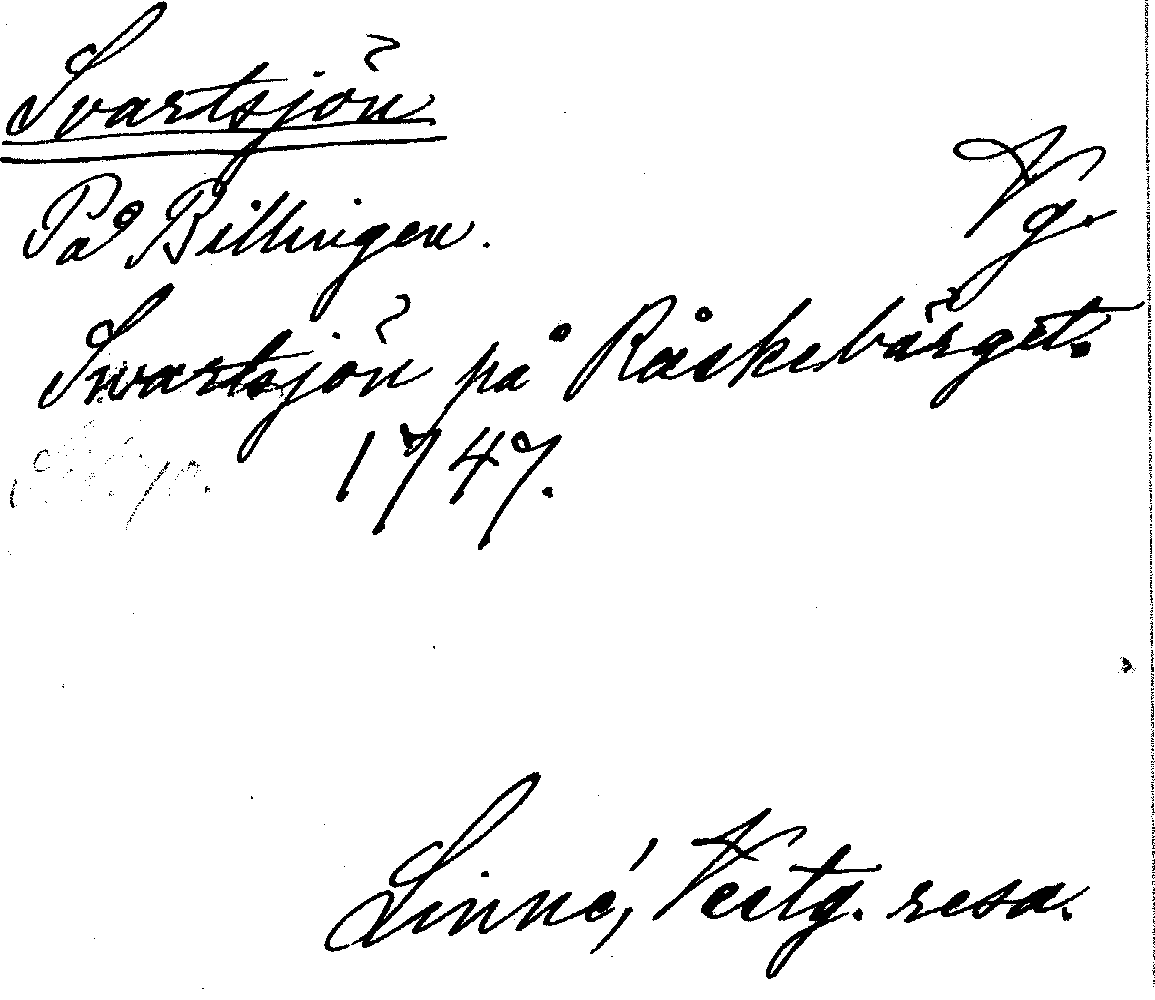 Svartsjön
På Billingen.
Vg.
Swartsjön på Råskebärget.
1747.
Linné, Vestg. resa.